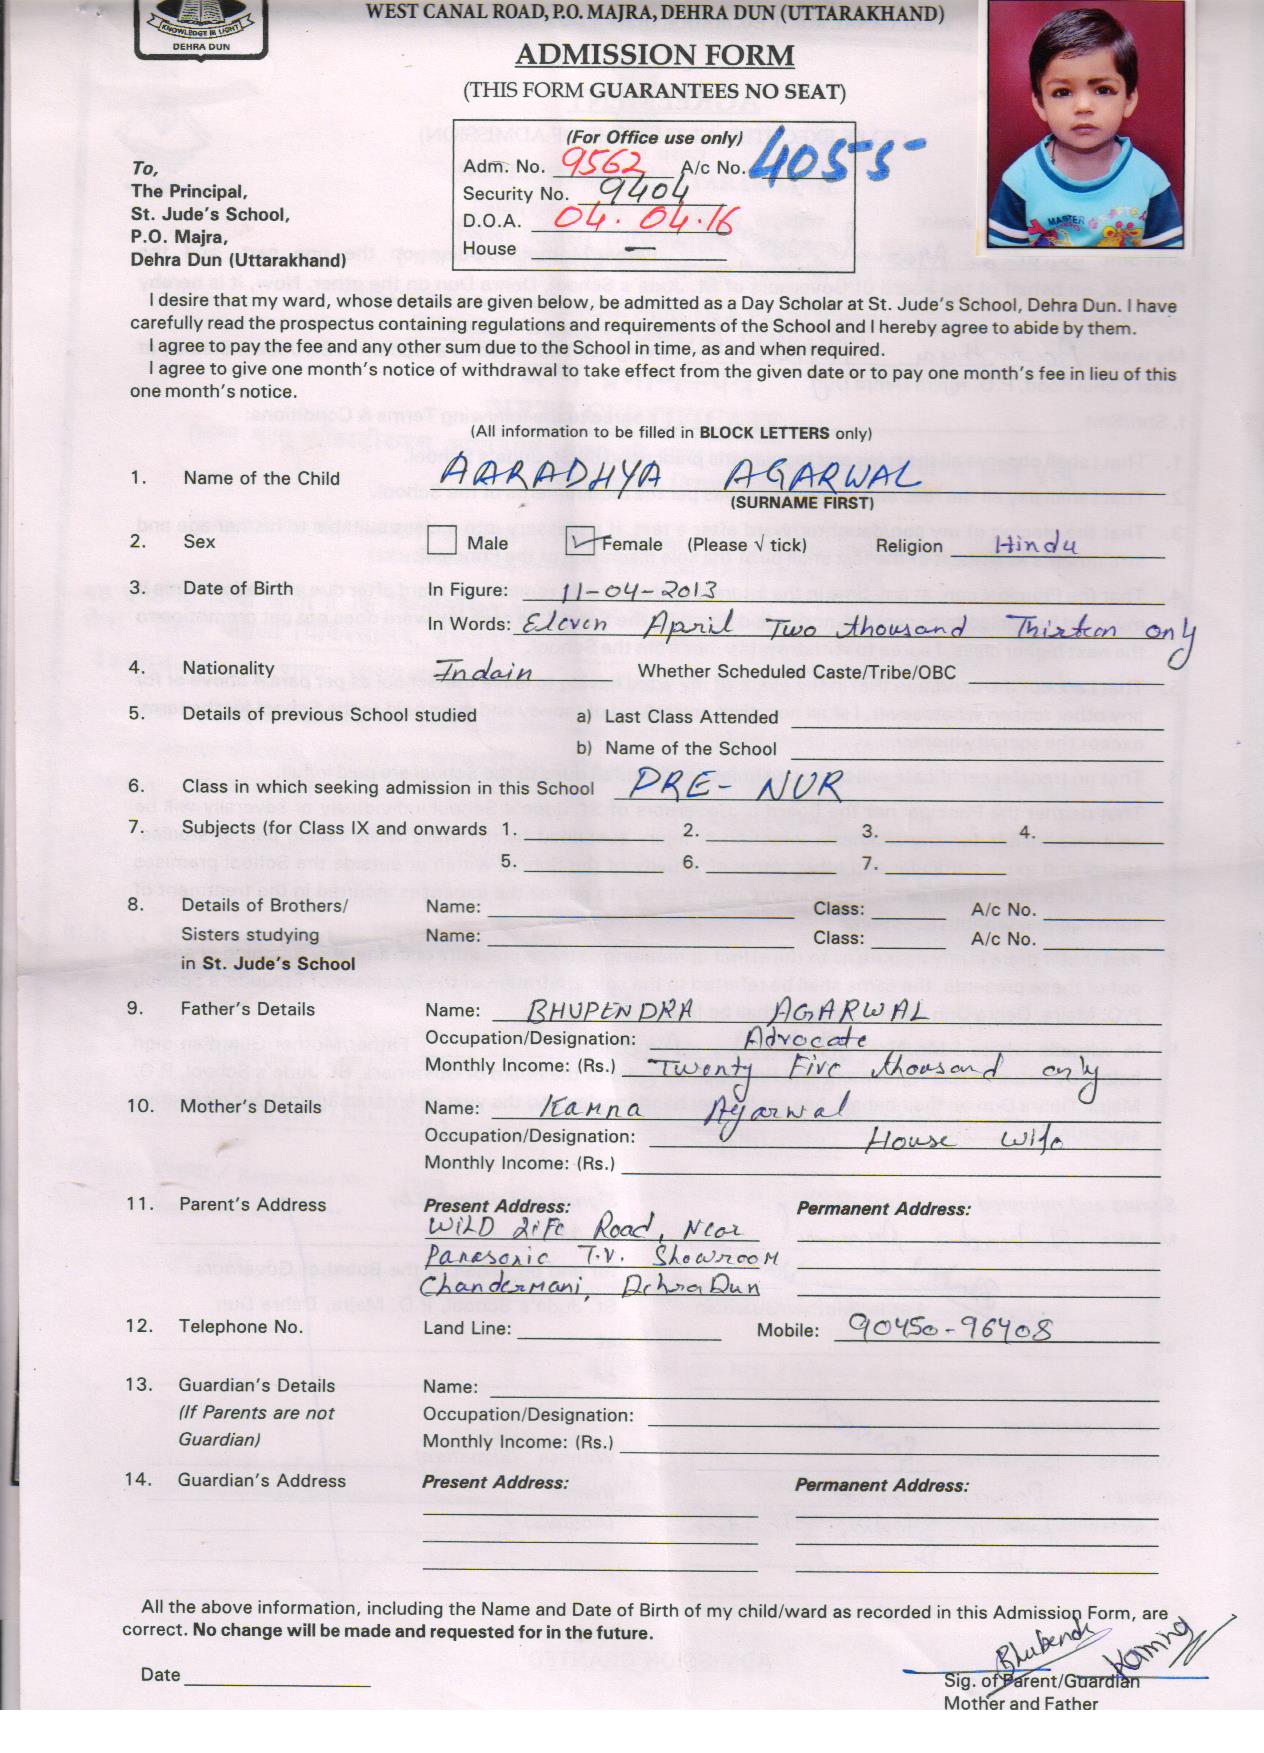 KNOWLEDGE IS LIGHT
DEHRA DUN
WEST CANAL ROAD, P.O. MAJRA, DEHRA DUN (UTTARAKHAND)
ADMISSION FORM
(THIS FORM GUARANTEES NO SEAT)
(For Office use only)
Adm. No. 9562 A/c No. 4055
Security No. 9404
D.O.A. 04.04.16
House —
To,
The Principal,
St. Jude's School,
P.O. Majra,
Dehra Dun (Uttarakhand)
MASTER
I desire that my ward, whose details are given below, be admitted as a Day Scholar at St. Jude's School, Dehra Dun. I have
carefully read the prospectus containing regulations and requirements of the School and I hereby agree to abide by them.
I agree to pay the fee and any other sum due to the School in time, as and when required.
I agree to give one month's notice of withdrawal to take effect from the given date or to pay one month's fee in lieu of this
one month's notice.
(All information to be filled in BLOCK LETTERS only)
1. Name of the Child AARADHYA AGARWAL
(SURNAME FIRST)
2. Sex Male Female (Please √ tick) Religion Hindu
3. Date of Birth In Figure: 11-04-2013
In Words: Eleven April Two thousand Thirteen only
4. Nationality Indain Whether Scheduled Caste/Tribe/OBC
5. Details of previous School studied a) Last Class Attended
b) Name of the School
6. Class in which seeking admission in this School PRE- NUR
7. Subjects (for Class IX and onwards 1. 2. 3. 4.
5. 6. 7.
8. Details of Brothers/ Name: Class: A/c No.
Sisters studying Name: Class: A/c No.
in St. Jude's School
9. Father's Details Name: BHUPENDRA AGARWAL
Occupation/Designation: Advocate
Monthly Income: (Rs.) Twenty Five thousand only
10. Mother's Details Name: Kamna Agarwal
Occupation/Designation: House wife
Monthly Income: (Rs.)
11. Parent's Address Present Address: Permanent Address:
WILD Life Road, Near
Panasonic T.V. Showroom
Chandermani, DehraDun
12. Telephone No. Land Line: Mobile: 90450-96408
13. Guardian's Details Name:
(If Parents are not Occupation/Designation:
Guardian) Monthly Income: (Rs.)
14. Guardian's Address Present Address: Permanent Address:
All the above information, including the Name and Date of Birth of my child/ward as recorded in this Admission Form, are
correct. No change will be made and requested for in the future.
Date
Sig. of Parent/Guardian
Mother and Father